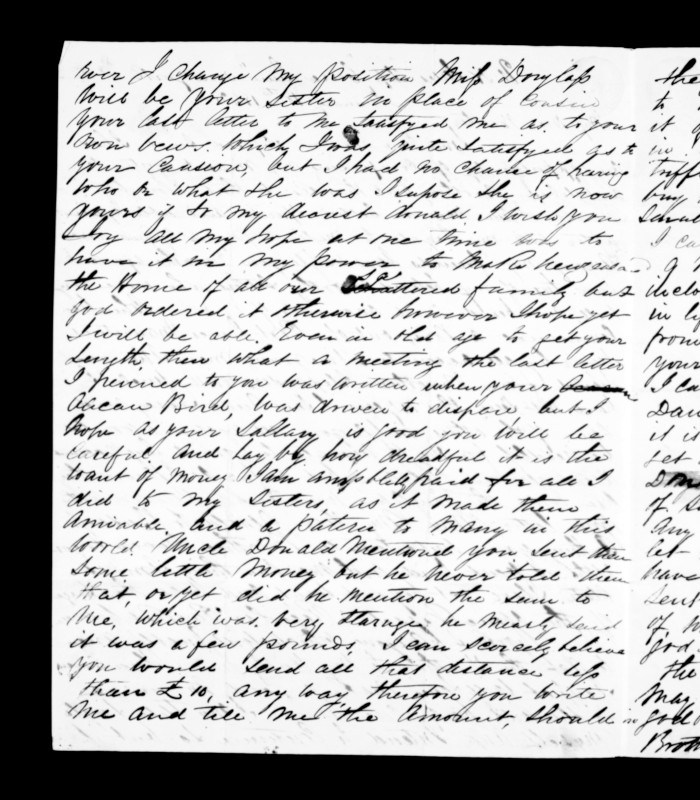 ever I change my position Miss Douglass
will be your Sister in place of Cousin
your last letter to me satisfyed me as to your
own vews. which I was, quite satisfyed as to
your Causion, but I had no chance of
who or what she was I supose she is now
yours if so my dearest Donald I wish you
Joy all my hope at one time was to
have it in my power to make
the Home of all our Scattered family but
god ordered it otherwise however I hope yet
I will be able. Even in old age to get your
Length then what a meeting the last letter
I to you was written when your
Bird, was driven to dispare but I
hope as your Sallary is good you will be
careful and Lay by how dreadful it is the
want of money I am amply paid for all I
did to my Sisters, as it made them
Amiable and a patern to many in this
world. Uncle Donald Mentioned you sent them
some little Money but he never told them
that, or yet did he mention the sum to
me, which was very strange, he mearly said
it was a few pounds, I can scorcely believe
you would send all that distance less
than £10, any way, therefore you write
me and tell me the Amount, Should
the
to
it
in
any
I ca
in
from
your
I ca
Dan
it i
get
of
any
let
have
sent
of
god
the
May
god
Broth